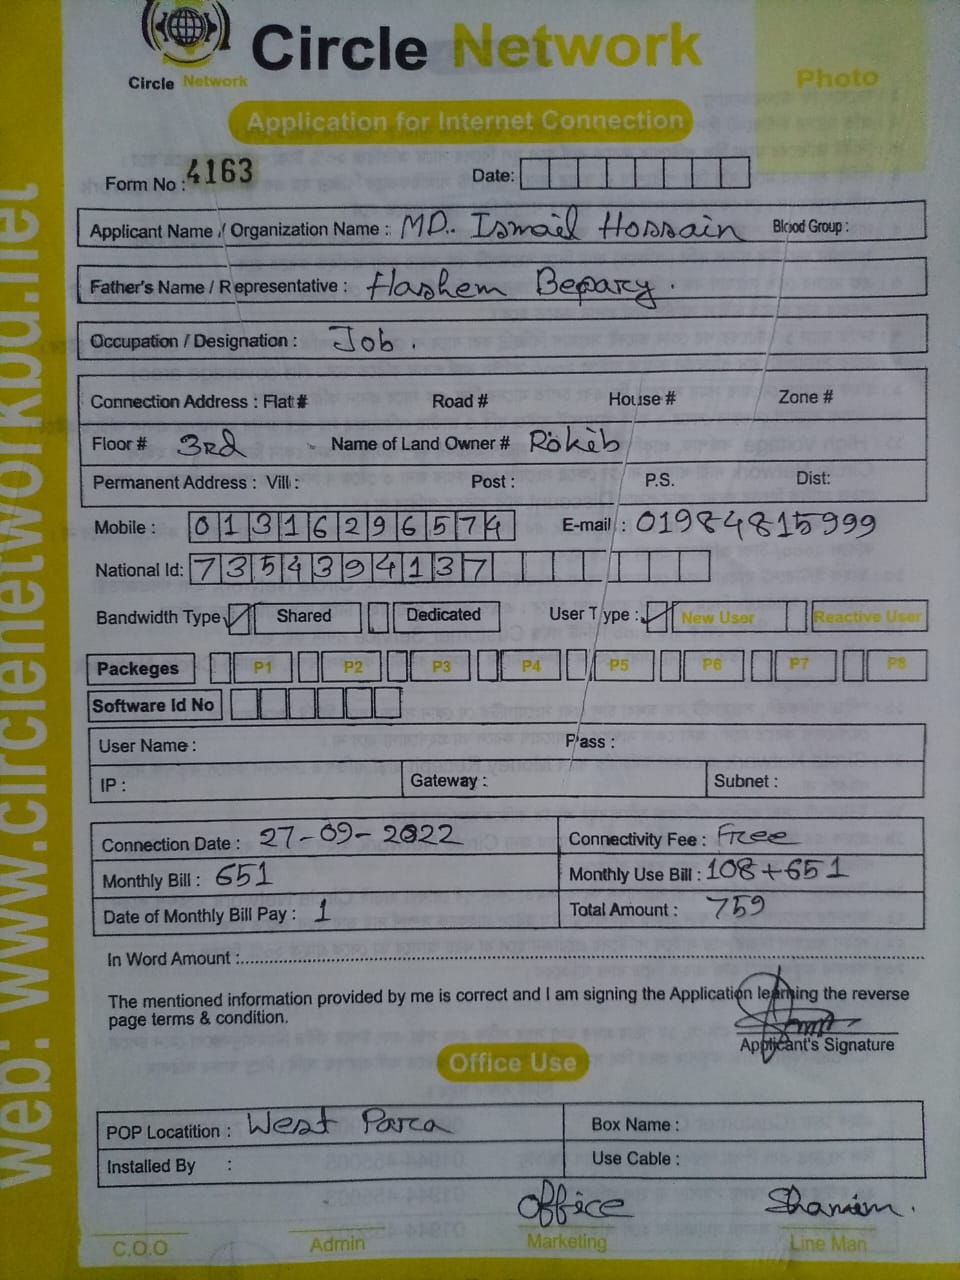 Circle Network
Circle Network
Photo
Application for Internet Connection
Form No : 4163 Date:
Applicant Name / Organization Name : MD.. Ismail Hossain Blood Group :
Father's Name / Representative : Hashem Bepary.
Occupation / Designation : Job.
Connection Address : Flat # Road # House # Zone #
Floor # 3rd Name of Land Owner # Rokib
Permanent Address : Vill : Post : P.S. Dist:
Mobile : 01316296574 E-mail : 01984815999
National Id: 7354394137
Bandwidth Type Shared Dedicated User Type : New User Reactive User
Packeges P1 P2 P3 P4 P5 P6 P7 P8
Software Id No
User Name : Pass :
IP : Gateway : Subnet :
Connection Date : 27-09-2022 Connectivity Fee : Free
Monthly Bill : 651 Monthly Use Bill : 108+651
Date of Monthly Bill Pay : 1 Total Amount : 759
In Word Amount :
The mentioned information provided by me is correct and I am signing the Application learning the reverse
page terms & condition.
Applicant's Signature
Office Use
POP Locatition : West Para Box Name :
Installed By : Use Cable :
Office Shamim.
C.O.O Admin Marketing Line Man
web: www.circlenetworkbd.net